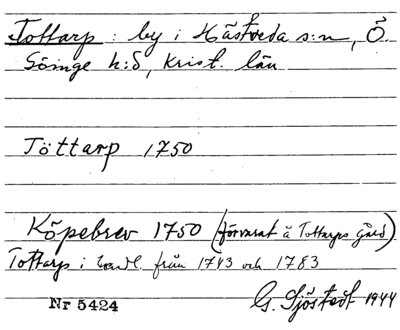 Tottarp : by i Hästveda s:n, Ö.
Göinge h:d, Krist. län
Töttarp 1750
Köpebrev 1750 (förvarat å Tottarps Gård)
Tottarp i handl. från 1743 och 1783
Nr 5424 G. Sjöstedt 1944